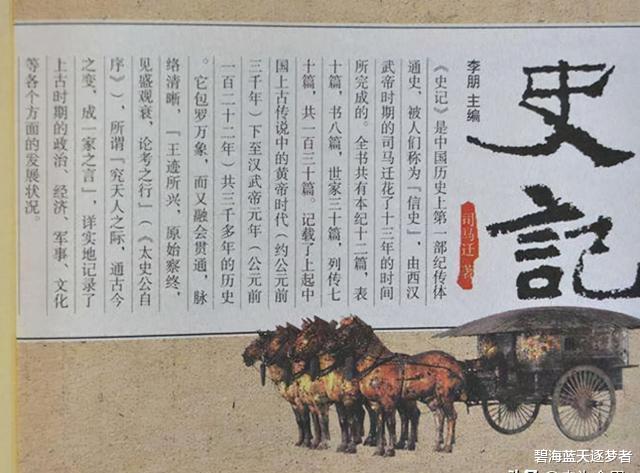 史記
司马迁 著
李朋 主编
《史记》是中国历史上第一部纪传体
通史，被人们称为「信史」，由西汉
武帝时期的司马迁花了十三年的时间
所完成的。全书共有本纪十二篇，表
十篇，书八篇，世家三十篇，列传七
十篇，共一百三十篇。记载了上起中
国上古传说中的黄帝时代（约公元前
三千年）下至汉武帝元年（公元前
一百二十二年）共三千多年的历史
。它包罗万象，而又融会贯通，脉
络清晰，「王迹所兴，原始察终，
见盛观衰，论考之行」（《太史公自
序》），所谓「究天人之际，通古今
之变，成一家之言」，详实地记录了
上古时期的政治、经济、军事、文化
等各个方面的发展状况。
碧海蓝天逐梦者